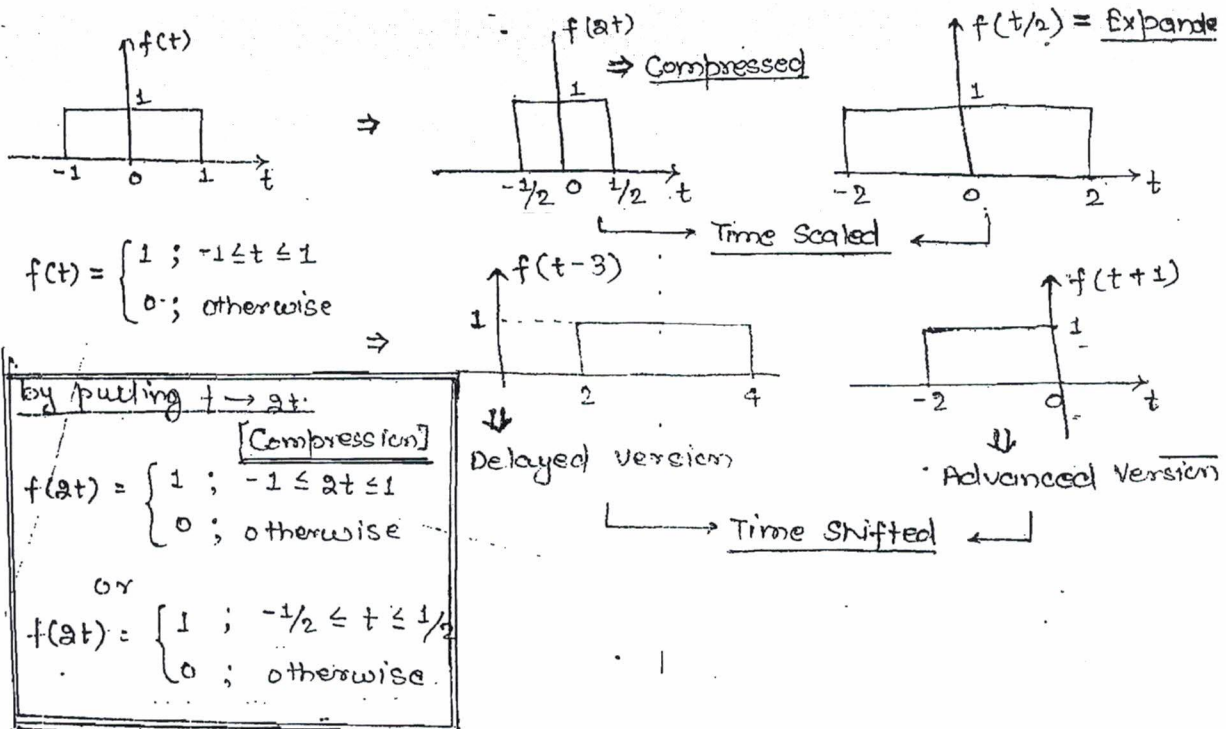 f(t)
1
-1 0 1 t
⇒
f(2t)
⇒ Compressed
1
-1/2 0 1/2 t
f(t/2) = Expande
1
-2 0 2 t
Time Scaled
f(t) = { 1 ; -1 ≤ t ≤ 1
0 ; otherwise
⇒
f(t-3)
1
2 4
⇓
Delayed version
f(t+1)
1
-2 0 t
⇓
Advanced version
Time Shifted
by putting t → 2t
[Compression]
f(2t) = { 1 ; -1 ≤ 2t ≤ 1
0 ; otherwise
or
f(2t) = { 1 ; -1/2 ≤ t ≤ 1/2
0 ; otherwise.